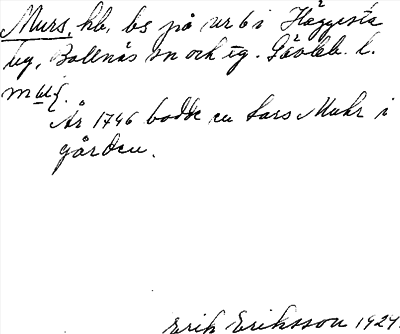 Murs, hb, bs på nr 6 i Häggesta
by, Bollnäs sn och tg. Gävleb. l.
År 1746 bodde en Lars Muhr i
gården.
Erik Eriksson 1924.